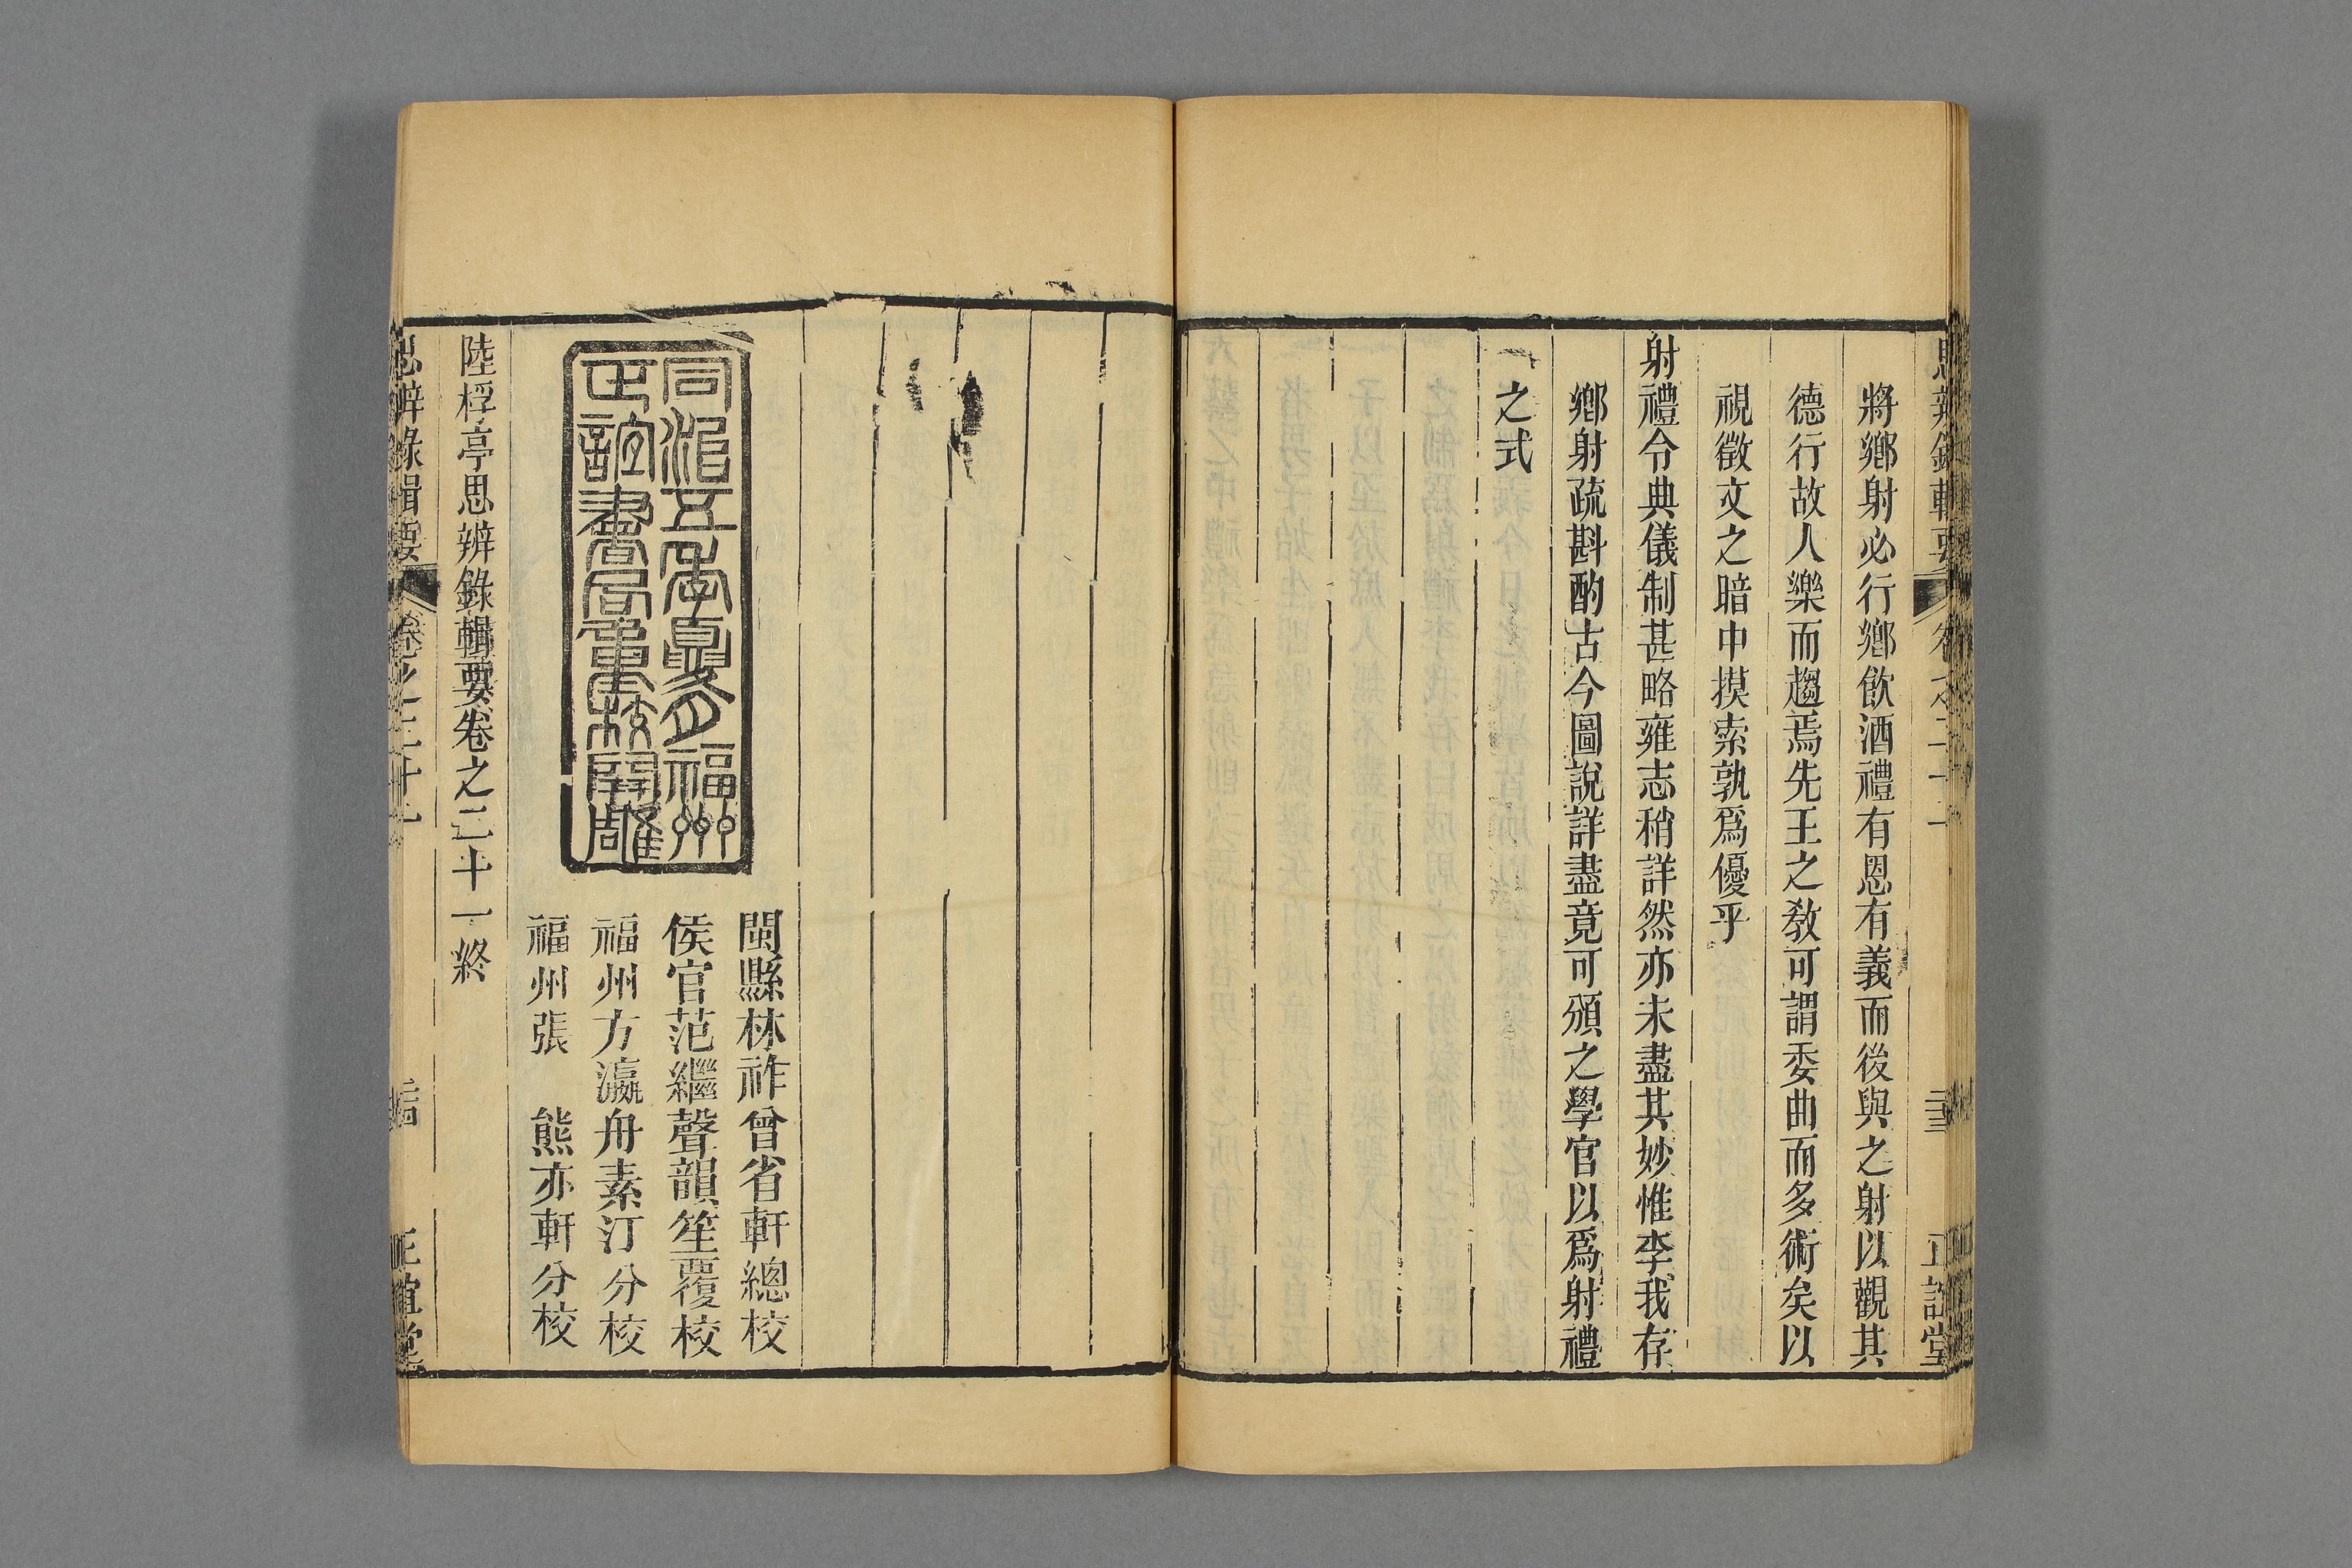 思辨錄輯要 卷之二十一 正誼堂
將鄉射必行鄉飲酒禮有恩有義而後與之射以觀其
德行故人樂而趨焉先王之教可謂委曲而多術矣以
視徵文之暗中摸索孰爲優乎
射禮今典儀制甚略雍志稍詳然亦未盡其妙惟李我存
鄉射疏斟酌古今圖說詳盡竟可頒之學官以爲射禮
之式
同治五年夏月福州
正誼書局重校開雕
閩縣林祚曾省軒總校
侯官范繼聲韻笙覆校
福州方瀛舟素汀分校
福州張 熊亦軒分校
陸桴亭思辨錄輯要卷之二十一終
思辨錄輯要 卷之二十一 正誼堂